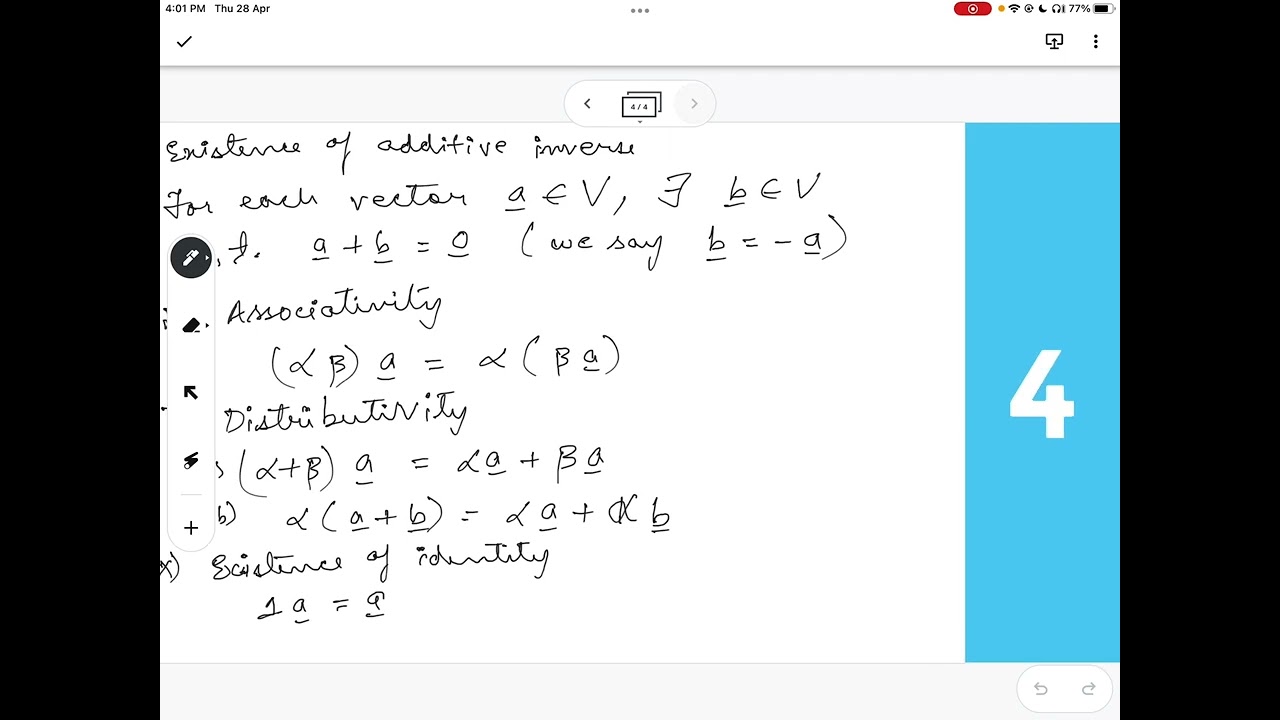 4:01 PM Thu 28 Apr
77%
4 / 4
Existence of additive inverse
For each vector a ∈ V, ∃ b ∈ V
.t. a + b = 0 (we say b = - a)
Associativity
(α β) a = α (β a)
Distributivity
(α+β) a = α a + β a
b) α (a + b) = α a + α b
x) Existence of identity
1 a = a
4